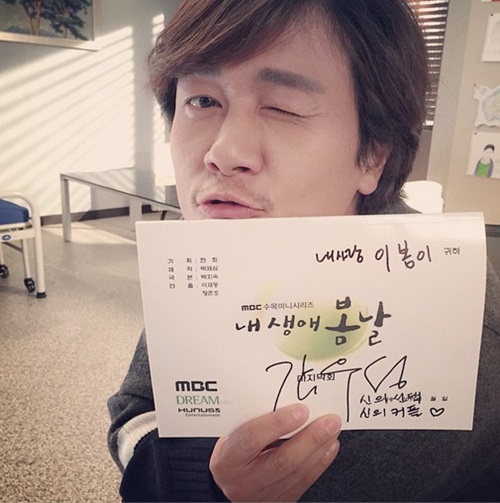 내사랑 이봄이 귀하
기 획 : 한 희
제 작 : 박재삼
극 본 : 박지숙
연 출 : 이재동
MBC 수목미니시리즈
내 생애 봄날
마지막회
감우성
신의 선택
신의 커플 ♡
MBC
DREAM
HUNUS
Entertainment